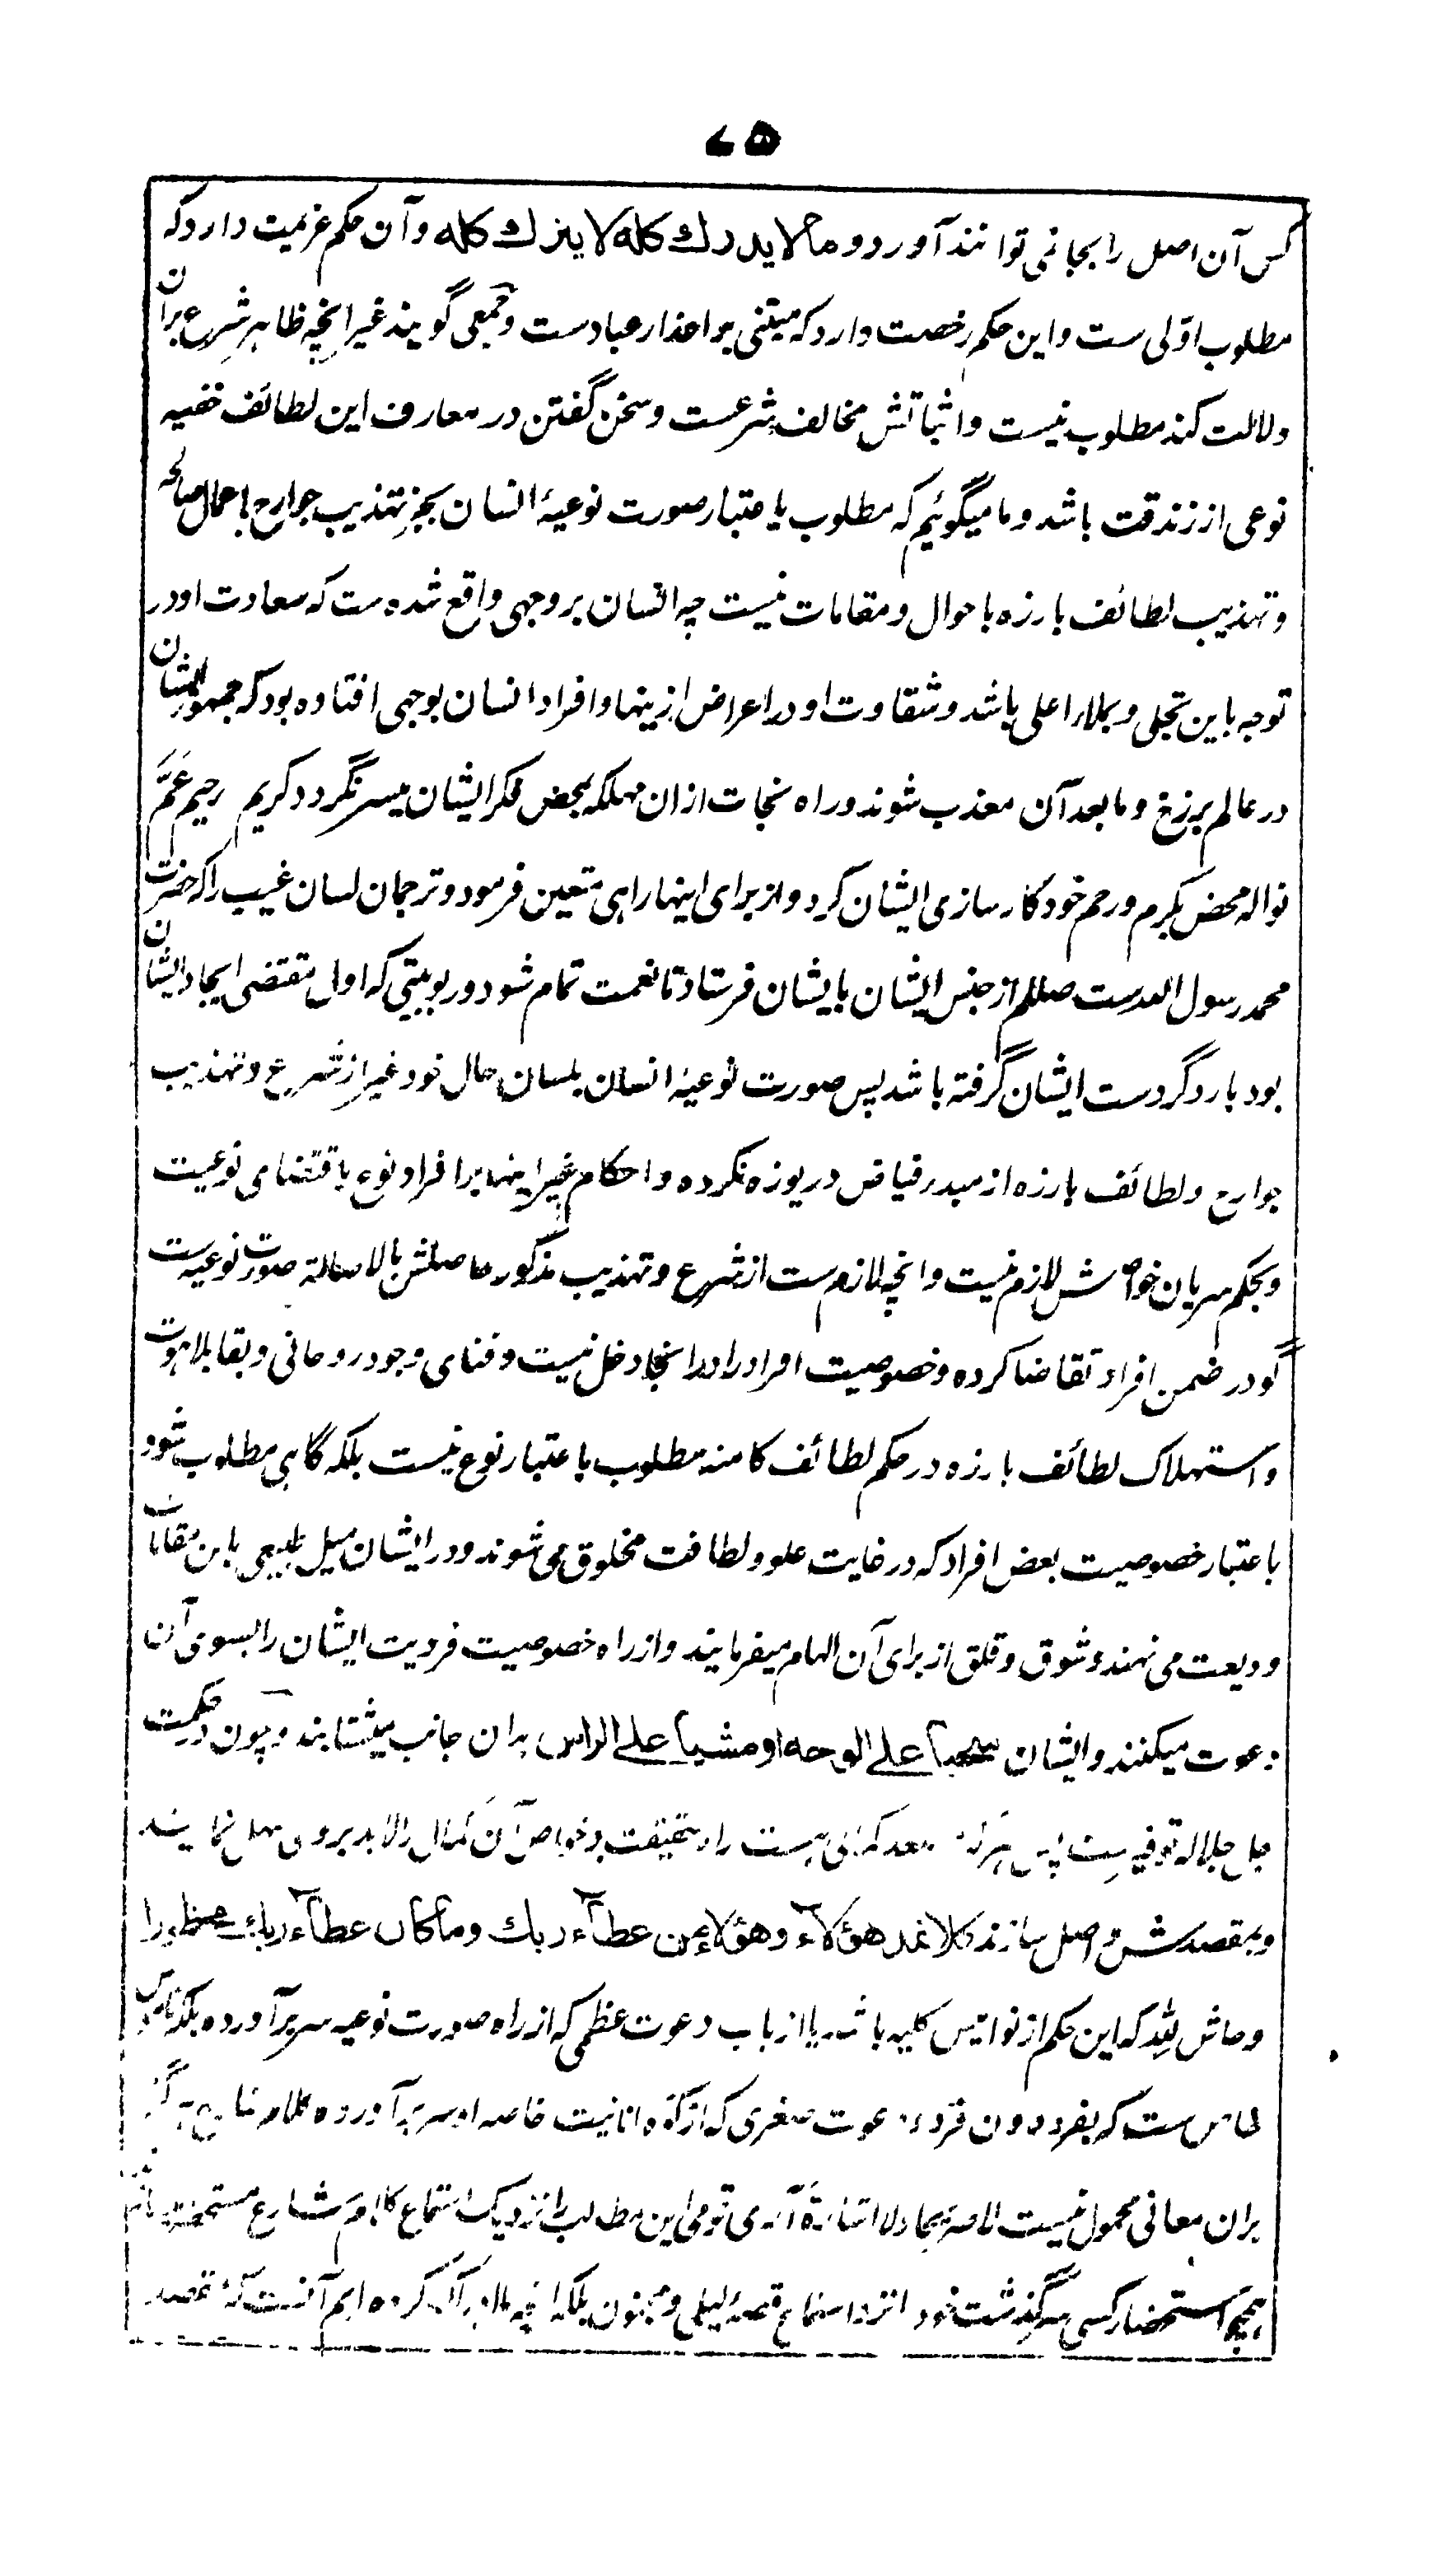 ۷۵
کس آن اصل را بجا نمی توانند آورد و ما لا یدرك كله لا یترك كله و آن حکم عزیمت دارد که
مطلوب اولی ست و این حکم رخصت دارد که مبتنی بر اعذار عباد ست و جمعی گویند غیر انچه ظاهر شرع بران
دلالت کند مطلوب نیست و اثباتش مخالف شرعست و سخن گفتن در معارف این لطائف خفیه
نوعی از زندقت باشد و ما میگوئیم که مطلوب باعتبار صورت نوعیۀ انسان بجز تهذیب جوارح باعمال صالحه
و تهذیب لطائف بارزه باحوال و مقامات نیست چه انسان بر وجهی واقع شده ست که سعادت او در
توجه باین تجلی و بملاء اعلی باشد و شقاوت او در اعراض ازینها و افراد انسان بوجهی افتاده بود که جمهور ایشان
در عالم برزخ و ما بعد آن معذب شوند و راه نجات ازان مهلکه بمحض فکر ایشان میسر نگردد کریم رحیم عَمَّ
نواله محض بکرم و رحم خود کار سازی ایشان کرد و از برای اینها راهی متعین فرمود و ترجمان لسان غیب را که حضرت
محمد رسول الله ست صللم از جنس ایشان بایشان فرستاد تا نعمت تمام شود و ربوبیتی که اول مقتضی ایجاد ایشان
بود بار دگر دست ایشان گرفته باشد پس صورت نوعیۀ انسان بلسان حال خود غیر از شرع و تهذیب
جوارح و لطائف بارزه از مبدء فیاض دریوزه نکرده و احکام غیر اینها بر افراد نوع باقتضای نوعیت
و بحکم سریان خواصش لازم نیست و انچه لازم ست از شرع و تهذیب مذکور حاصلش بالاصالة صورت نوعیه ست
گو در ضمن افراد تقاضا کرده و خصوصیت افراد را در انجا دخل نیست و فنای وجود روحانی و بقا بلاهوت
و استهلاک لطائف بارزه در حکم لطائف کامنه مطلوب باعتبار نوع نیست بلکه گاهی مطلوب شود
باعتبار خصوصیت بعض افراد که در غایت علو و لطافت مخلوق می شوند و در ایشان میل طبیعی باین مقامات
ودیعت می نهند و شوق و قلق از برای آن الهام میفرمایند و از راه خصوصیت فردیت ایشان را بسوی آن
دعوت میکنند و ایشان سحبا علی الوجه او مشیا علی الراس بدان جانب میشتابند و چون در حکمت
جل جلاله توفیه ست پس هر که معد کمالی ست راه حقیقت و خواص آن کمال را لابد بر وی سهل نمایند
و بمقصدش واصل سازند كلا نمد هؤلاء وهؤلاء من عطاء ربك وما كان عطاء ربك محظورا
و حاش لله که این حکم از نوامیس کلیه باشد یا از باب دعوت عظمی که از راه صورت نوعیه سر برآورده بلکه ناموس
خاص ست که بفرد دون فرد دعوت صغری که از کوه انانیت خاصه او سر برآورده کلام شارع
بران معانی محمول نیست لا صریحا و لا اشارة آری قومی این مطلب را نزدیک استماع کلام شارع مستحضر
استحضار کسی سرگذشت خود نزد استماع قصۀ لیلی و مجنون بلکه انچه کرده ایم آنست که